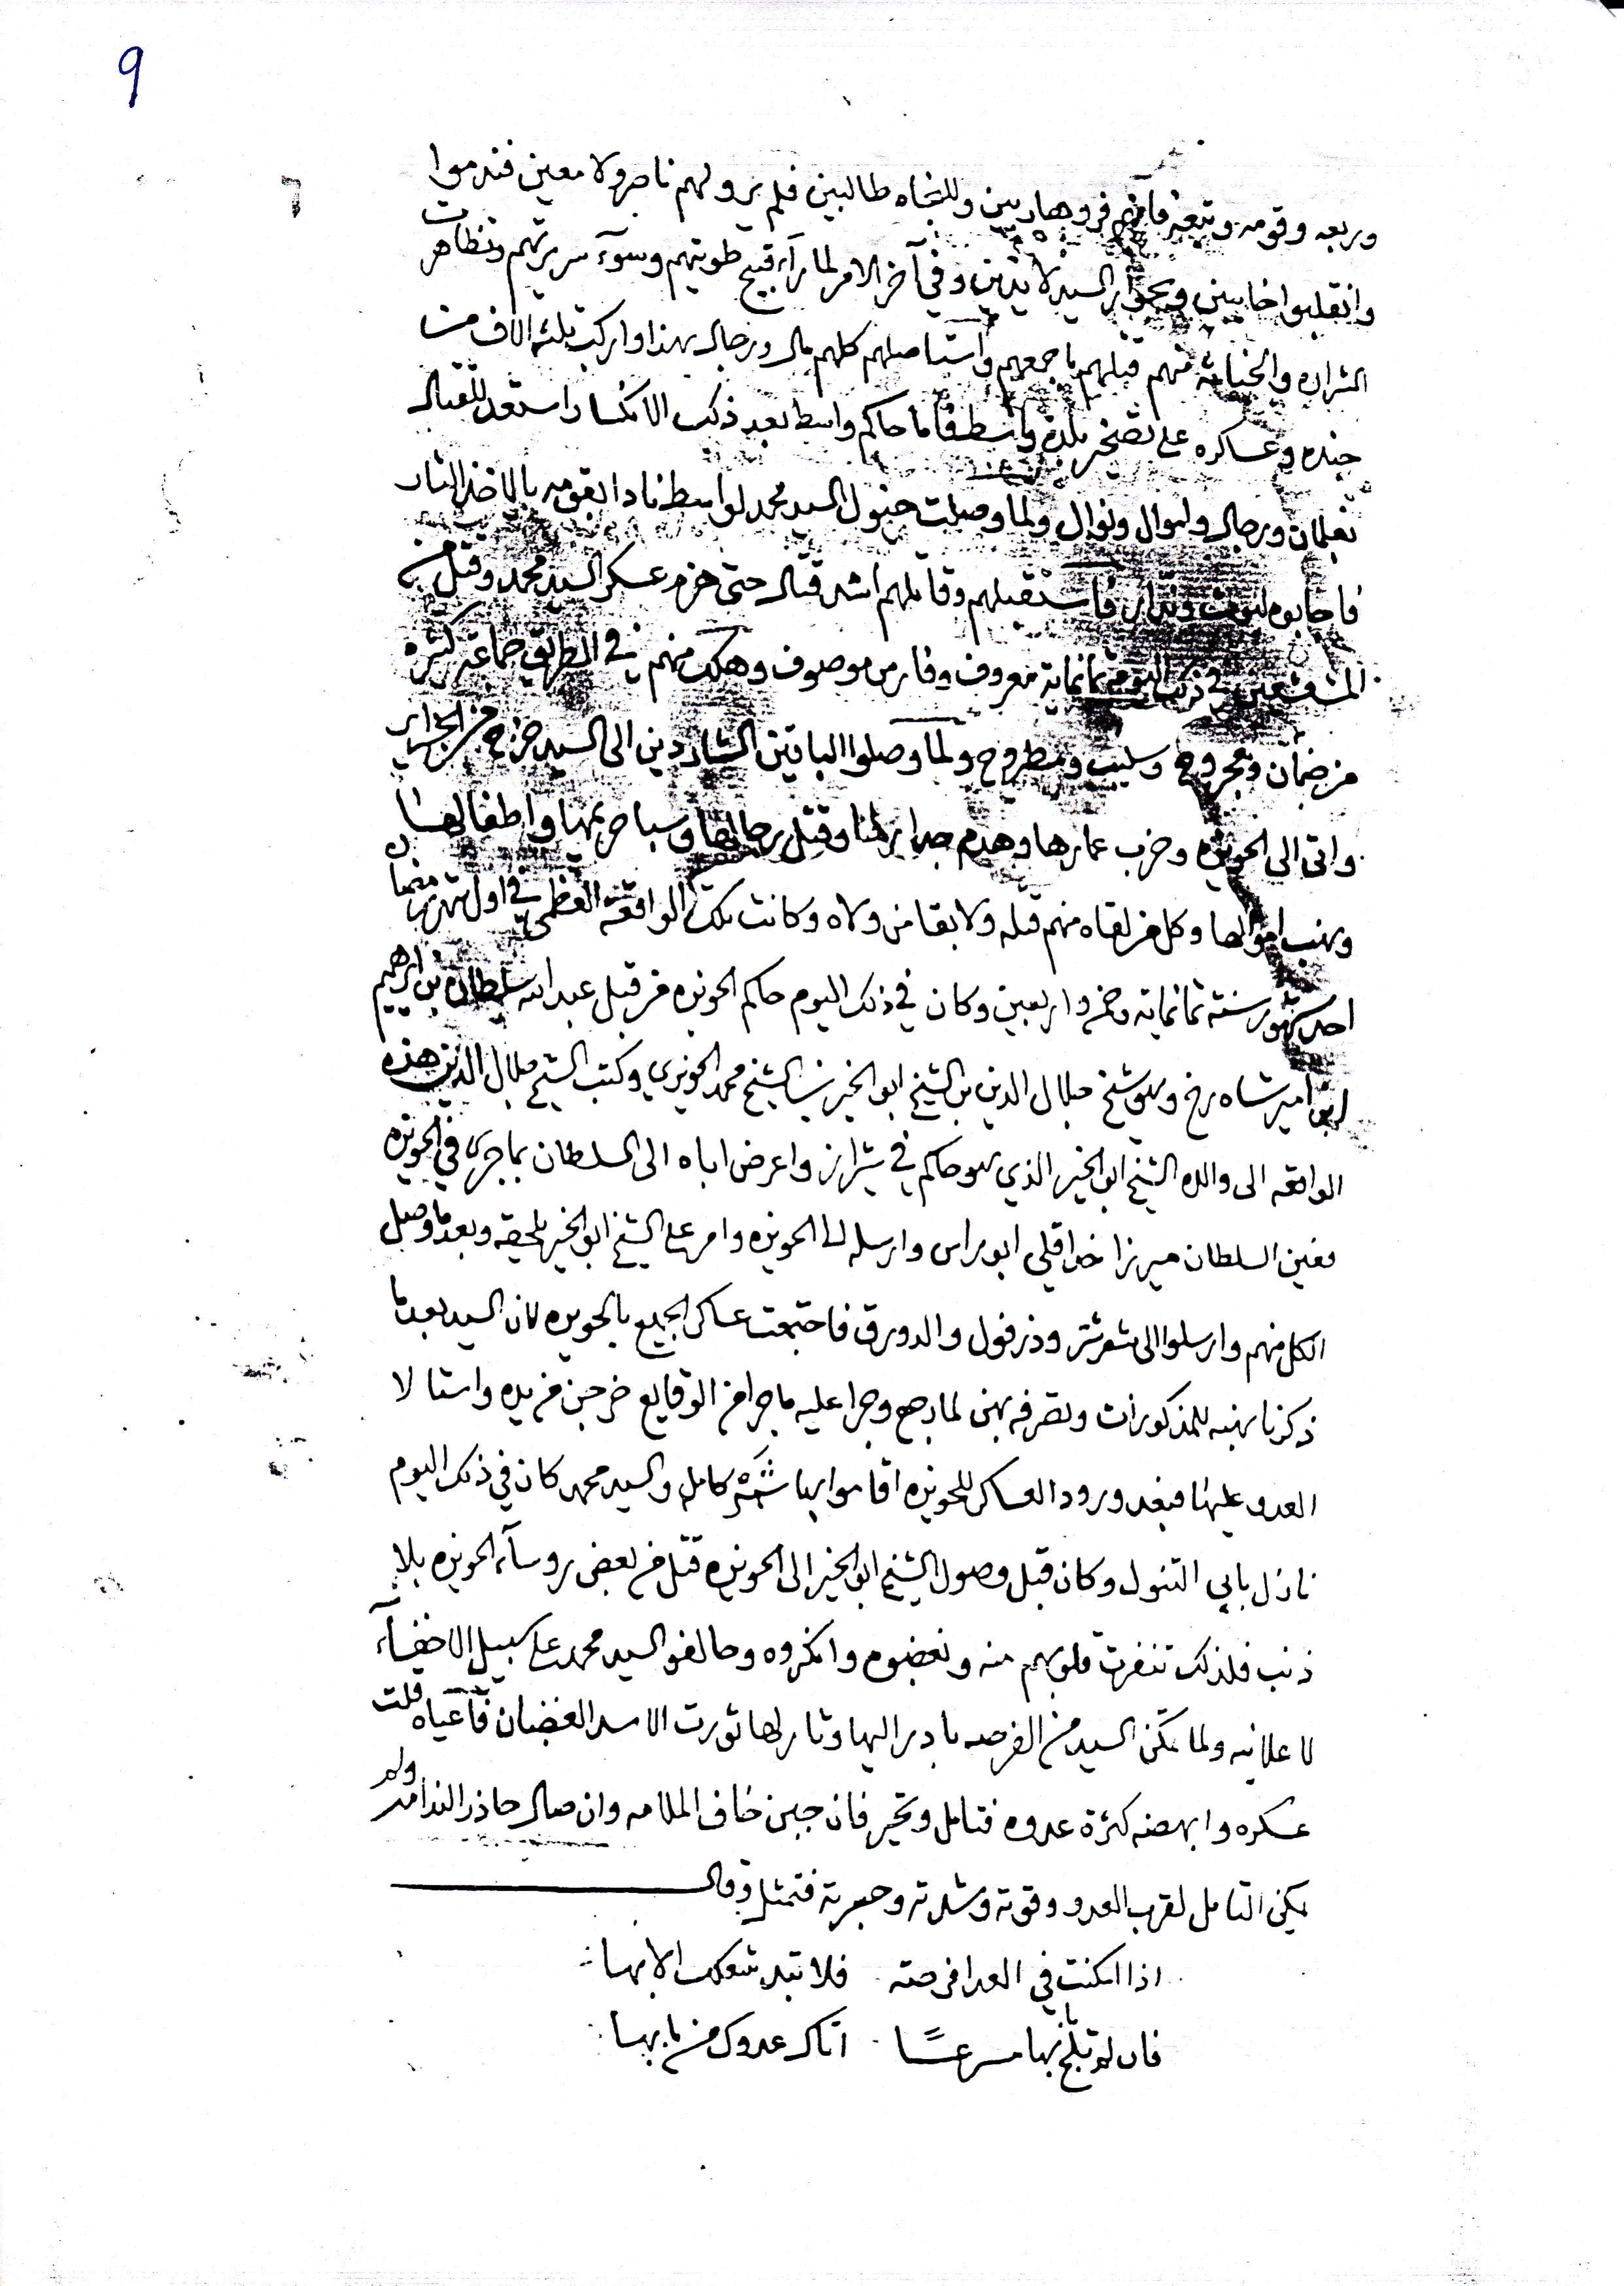 9
وربعه وقومه وتبعه فانهم فروهاربين وللنجاه طالبين فلم يرو لهم ناصر ولا معين فندموا
وانقلبوا خايبين وبجوار السيد لايذين وفي آخر الامر لما رآء قبيح طويتهم وسوء سريرتهم وتظاهرت
الشراره والخيانه منهم قتلهم باجمعهم واستاصلهم كلهم مال ورجال بهذا واركب ثلثه الاف من
جنده وعساكره على تصخير بلدة واسط فاما حاكم واسط بعد ذلك الانكسار استعد للقتال
بغلمان ورجال واموال ونوال ولما وصلت خيول السيد محمد لواسط نادا بقومه بالاخذ الثار
فاجابوه فاستقبلهم وقاتلهم اشد قتال حتى هزم عسكر السيد محمد وقتل من
المشعشعين في ذلك اليوم ثمانماية معروف وفارس موصوف وهلك منهم في الطريق جماعة كثيره
من ضمآن ومجروح وسليب ومطروح ولما وصلوا الباقين الشاردين الى السيد خرج من الجزاير
واتى الى الحويزه وخرب عمارها وهدم جدارها وقتل رجالها وسبا حريمها واطفالها
ونهب اموالها وكل من لقاه منهم قتله ولا بقا من ولاه وكانت تلك الواقعه العظمى في اول شهر رمضان
احد شهور سنته ثمانمايه وخمس واربعين وكان في ذلك اليوم حاكم الحويزه من قبل عبد الله سلطان بن ابرهيم
ابن امير شاه رخ وهو شيخ جلال الدين بن الشيخ ابو الخير بن الشيخ محمد الجزيري وكتب الشيخ جلال الدين هذه
الواقعه الى والده الشيخ ابو الخير الذي هو حاكم في شيراز واعرض اباه الى السلطان بما جرى في الحويزه
فعين السلطان ميرزا خدا قلي ابو راس وارسله الى الحويزه وامر على الشيخ ابو الخير يلحقه وبعد ما وصل
الكل منهم وارسلوا الى شوشتر وذزفول والدورق فاجتمعت عساكر الجميع بالحويزه لان السيد بعد ما
ذكرنا نهبه للمذكورات وتصرفه بهن لما رجع وجرا عليه ما جرا من الوقايع خرجن من يده واستالا
العدو عليها فبعد ورود العساكر للحويزه اقاموا بها شهر كامل والسيد محمد كان في ذلك اليوم
نازل بابي التنول وكان قبل وصول الشيخ ابو الخير الى الحويزه قتل من بعض روسآء الحويزه بلا
ذنب فلذلك تنفرت قلوبهم منه وبغضوه وانكروه وحالفو السيد محمد على سبيل الاخفآء
لا علانيه ولما تمكن السيد من الفرصه بادر اليها وثار لها ثورت الاسد الغضبان فآعياه قلت
عسكره وابهضه كثرة عدوه فتامل وتحير فان جبن خاف الملامه وان صال حاذر الندامه ولم
يكن التامل لقرب العدو وقوته وشدته وجبرته فتمثل وقال
اذا امكنت في العدا فرصته فلا تبد شغلك الا بها
فان لم تلج بابها مسرعًا اتاك عدوك من بابها